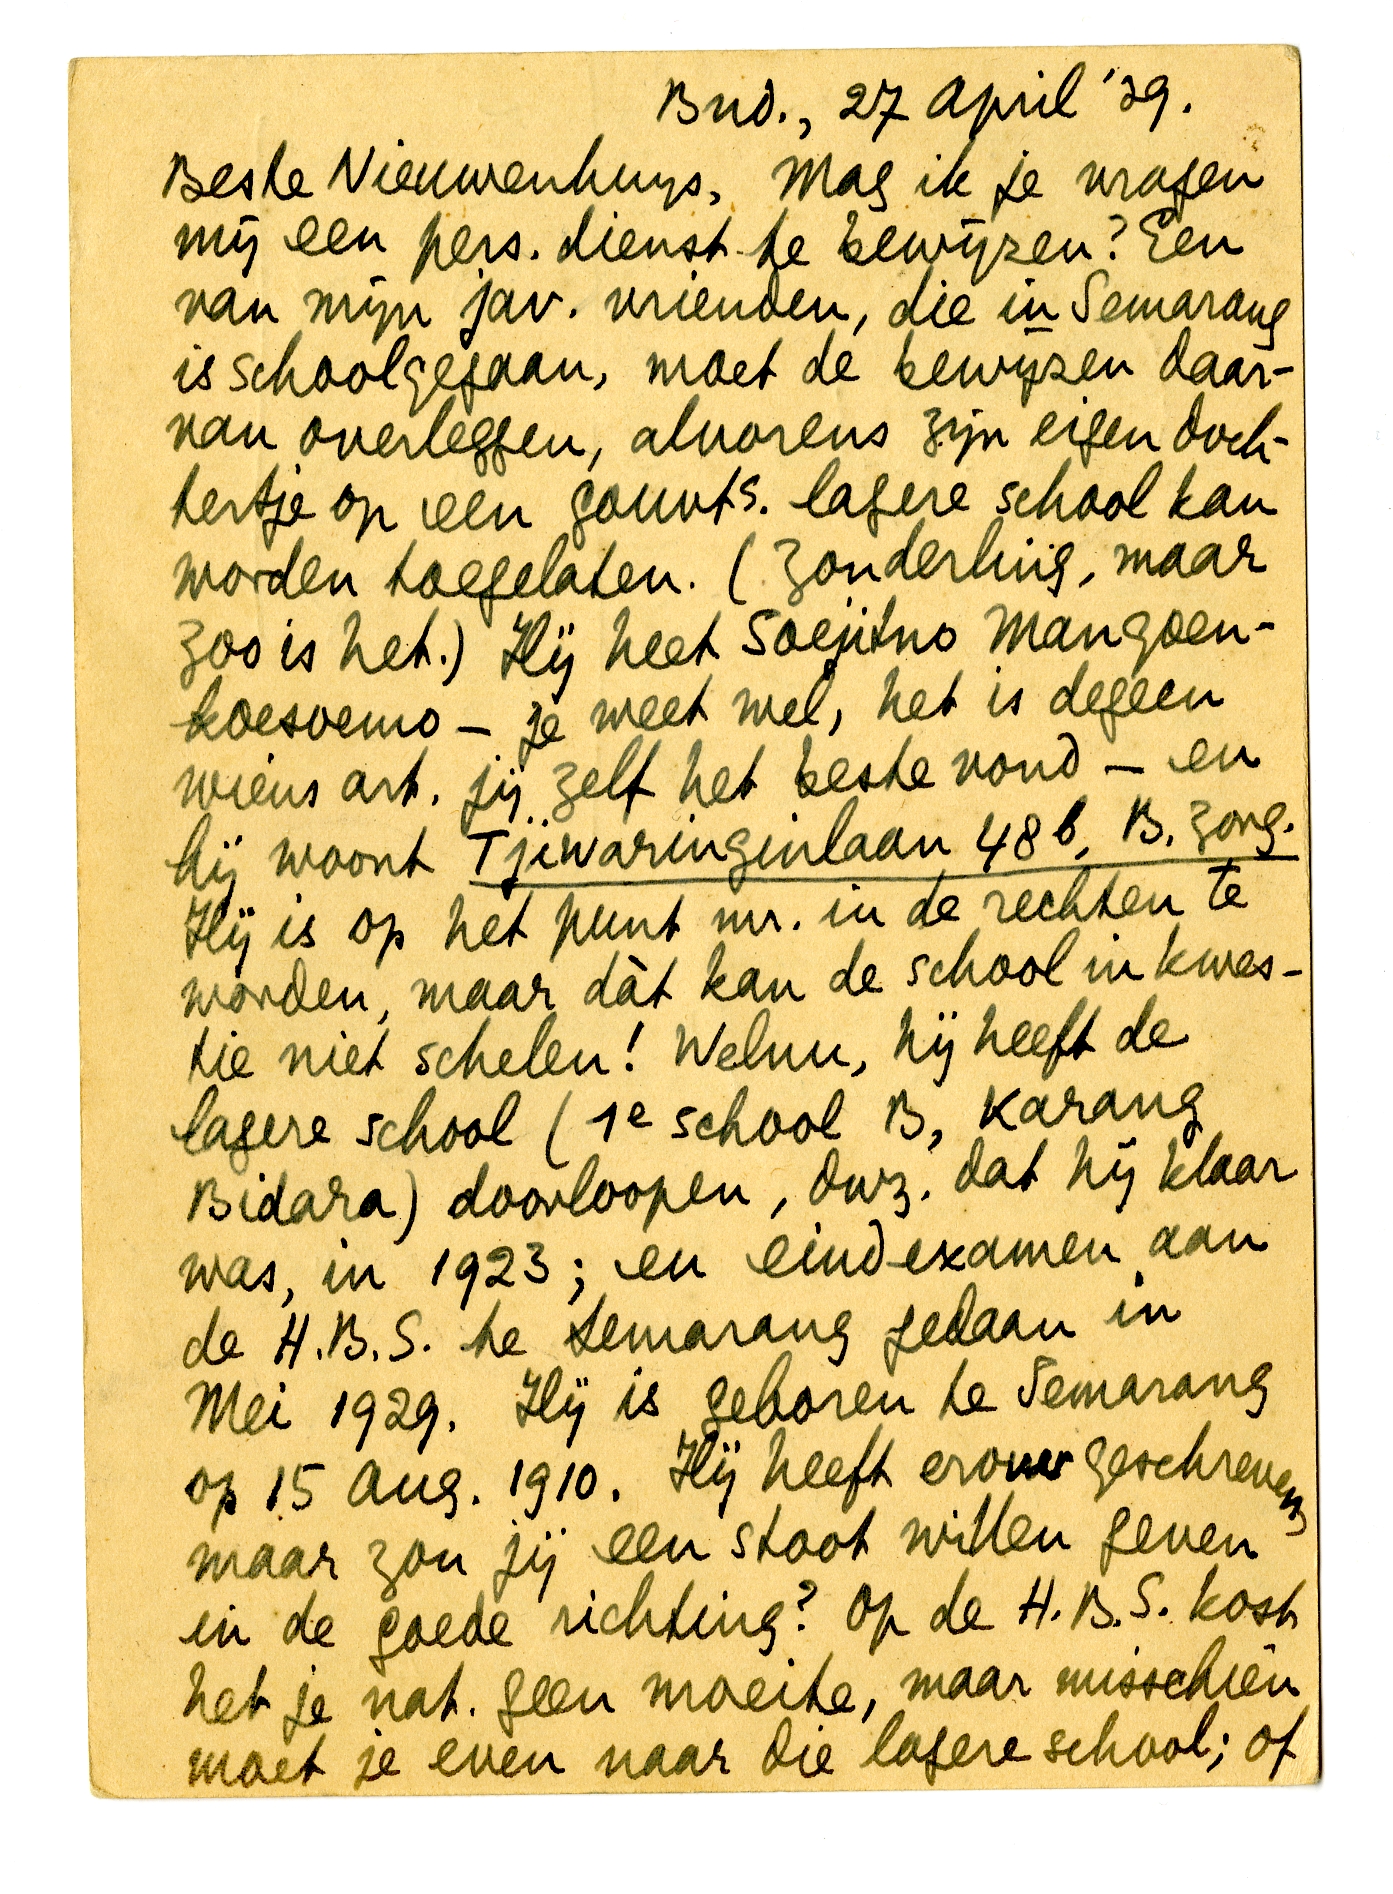 Bnd., 27 April '39.
Beste Nieuwenhuys, Mag ik je vragen
mij een pers. dienst te bewijzen? Een
van mijn jav. vrienden, die in Semarang
is schoolgegaan, moet de bewijzen daar-
van overleggen, alvorens zijn eigen doch-
tertje op een gouvts. lagere school kan
worden toegelaten. (Zonderling, maar
zoo is het.) Hij heet Soejitno Mangoen-
koesoemo – je weet wel, het is degeen
wiens art. jij zelf het beste vond – en
hij woont Tjiwaringinlaan 48b, B. zorg.
Hij is op het punt mr. in de rechten te
worden, maar dàt kan de school in kwes-
tie niet schelen! Welnu, hij heeft de
lagere school (1e school B, Karang
Bidara) doorloopen, dwz. dat hij klaar
was, in 1923; en eindexamen aan
de H.B.S. te Semarang gedaan in
Mei 1929. Hij is geboren te Semarang
op 15 Aug. 1910. Hij heeft erover geschreven,
maar zou jij een stoot willen geven
in de goede richting? Op de H.B.S. kost
het je nat. geen moeite, maar misschien
moet je even naar die lagere school; of